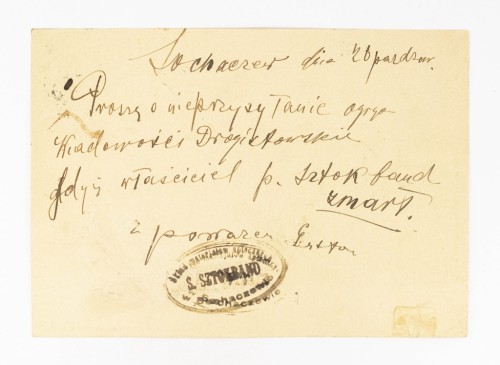 Sochaczew dnia 26 paźdzer.
Proszę o nieprzysyłanie
Wiadomości Drogistowskie
gdyż właściciel p. Sztokband
zmarł.
z poważa
S. SZTOKBAND
w Sochaczewie